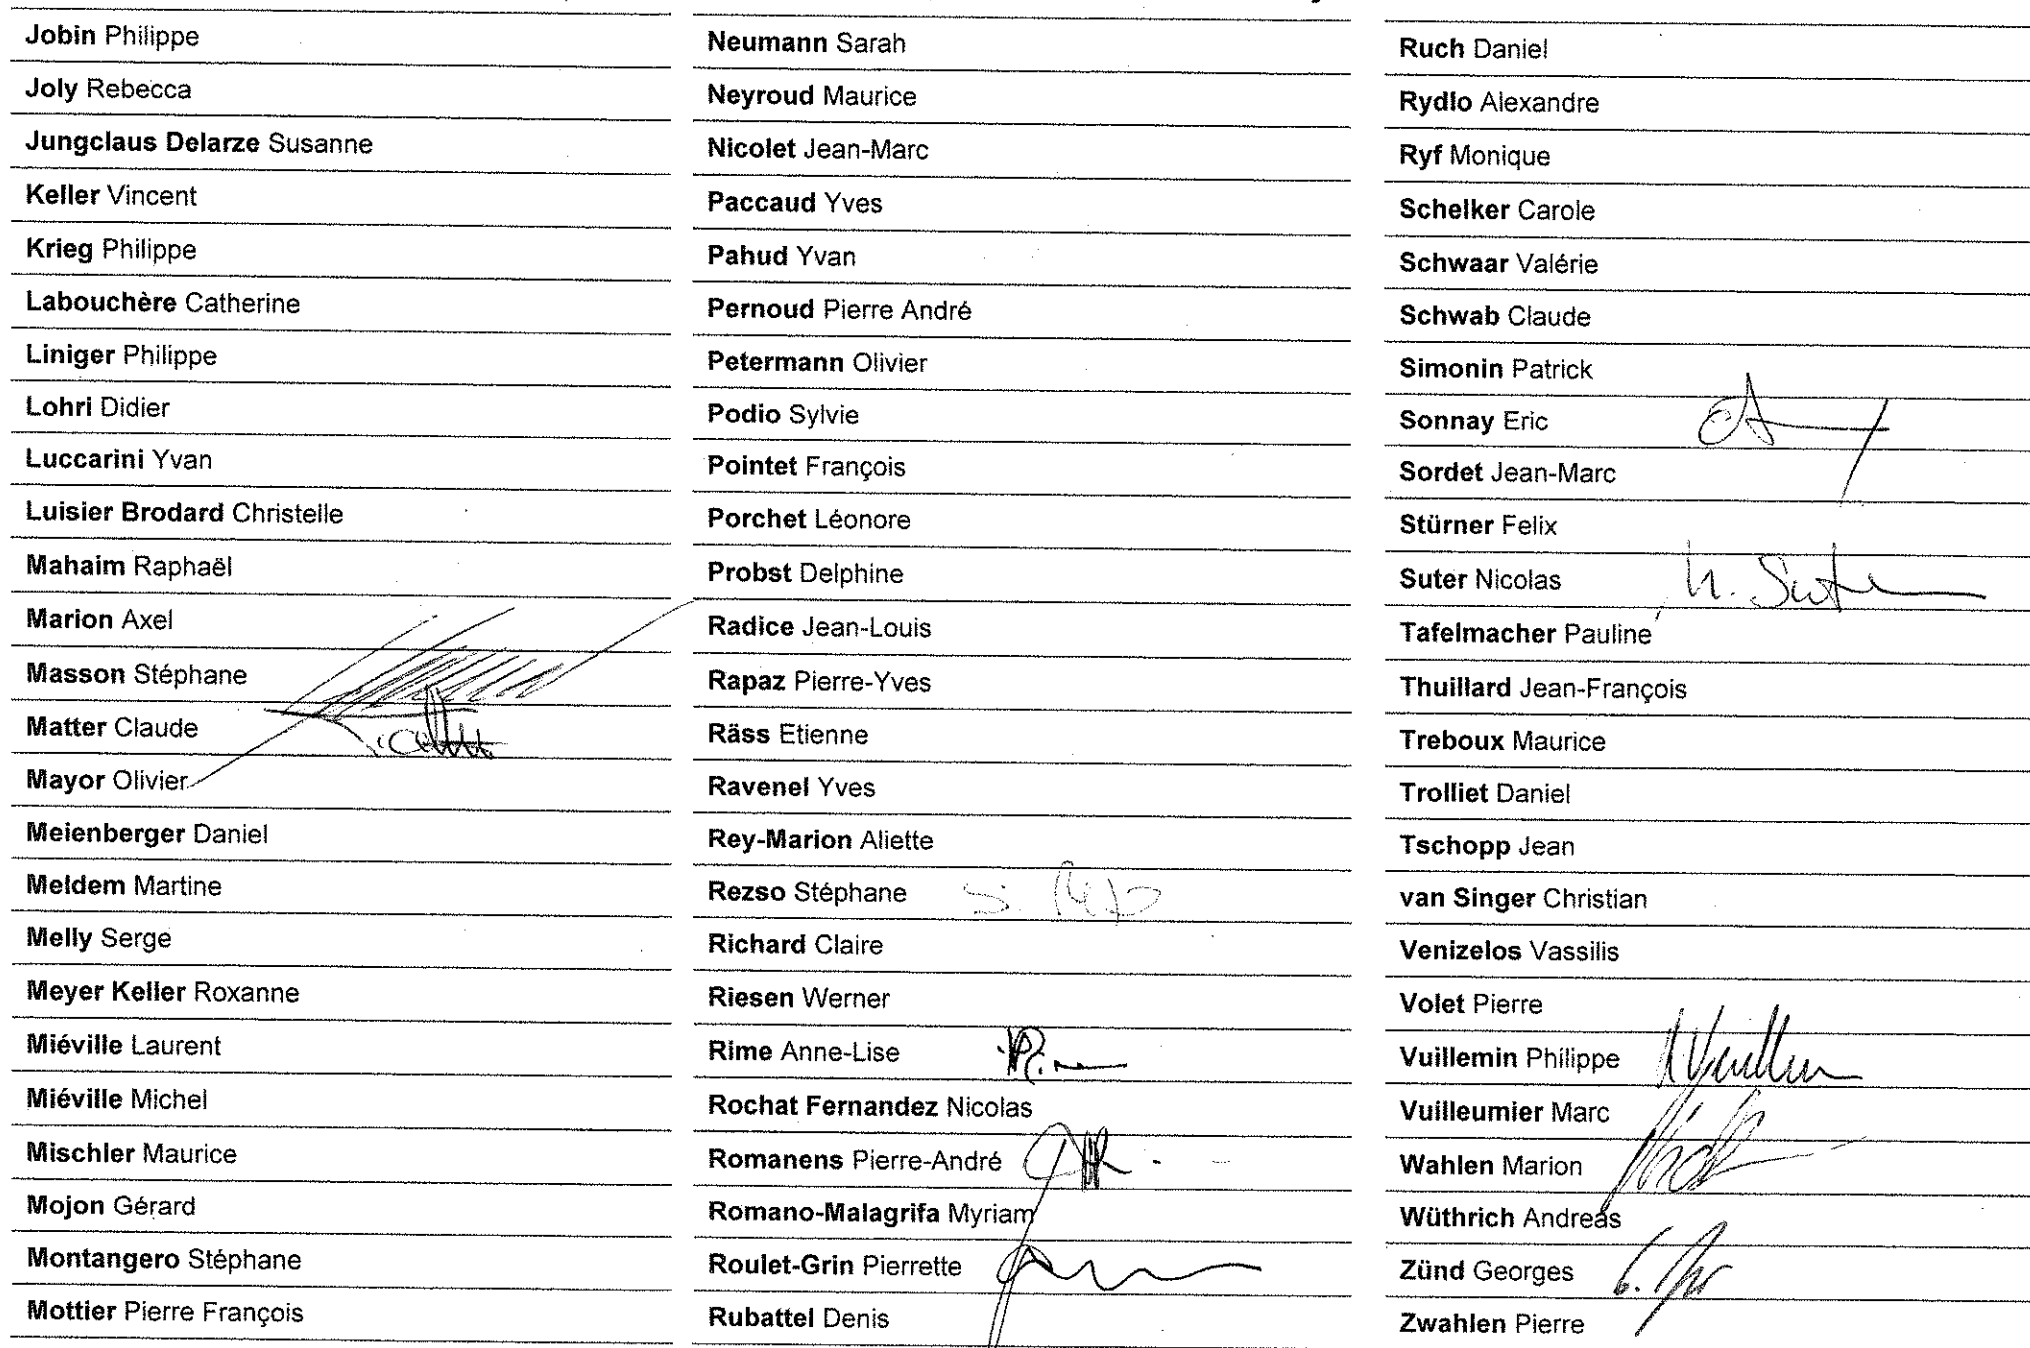 Jobin Philippe
Joly Rebecca
Jungclaus Delarze Susanne
Keller Vincent
Krieg Philippe
Labouchère Catherine
Liniger Philippe
Lohri Didier
Luccarini Yvan
Luisier Brodard Christelle
Mahaim Raphaël
Marion Axel
Masson Stéphane
Matter Claude
Mayor Olivier
Meienberger Daniel
Meldem Martine
Melly Serge
Meyer Keller Roxanne
Miéville Laurent
Miéville Michel
Mischler Maurice
Mojon Gérard
Montangero Stéphane
Mottier Pierre François
Neumann Sarah
Neyroud Maurice
Nicolet Jean-Marc
Paccaud Yves
Pahud Yvan
Pernoud Pierre André
Petermann Olivier
Podio Sylvie
Pointet François
Porchet Léonore
Probst Delphine
Radice Jean-Louis
Rapaz Pierre-Yves
Räss Etienne
Ravenel Yves
Rey-Marion Aliette
Rezso Stéphane
Richard Claire
Riesen Werner
Rime Anne-Lise
Rochat Fernandez Nicolas
Romanens Pierre-André
Romano-Malagrifa Myriam
Roulet-Grin Pierrette
Rubattel Denis
Ruch Daniel
Rydlo Alexandre
Ryf Monique
Schelker Carole
Schwaar Valérie
Schwab Claude
Simonin Patrick
Sonnay Eric
Sordet Jean-Marc
Stürner Felix
Suter Nicolas N. Suter
Tafelmacher Pauline
Thuillard Jean-François
Treboux Maurice
Trolliet Daniel
Tschopp Jean
van Singer Christian
Venizelos Vassilis
Volet Pierre
Vuillemin Philippe
Vuilleumier Marc
Wahlen Marion
Wüthrich Andreas
Zünd Georges
Zwahlen Pierre